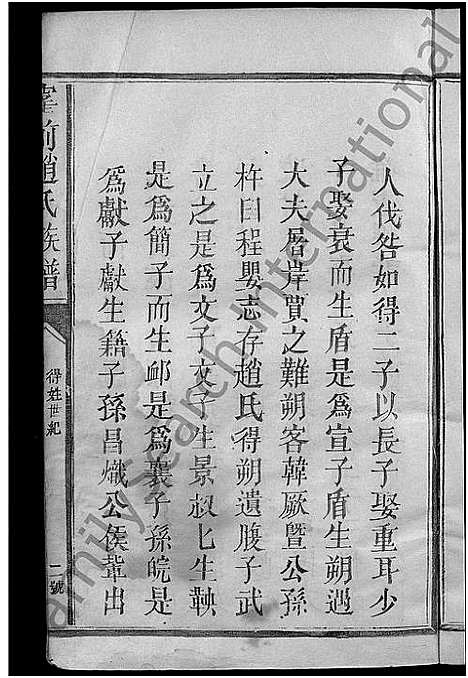 人伐咎如得二子以長子娶重耳少
子娶衰而生盾是爲宣子盾生朔遇
大夫屠岸賈之難朔客韓厥暨公孫
杵臼程嬰志存趙氏得朔遺腹子武
立之是爲文子文子生景叔匕生鞅
是爲簡子而生邮是爲襄子孫皖是
爲獻子獻生籍子孫昌熾公侯輩出
前趙氏族譜
得姓世紀
二號
Family Search International